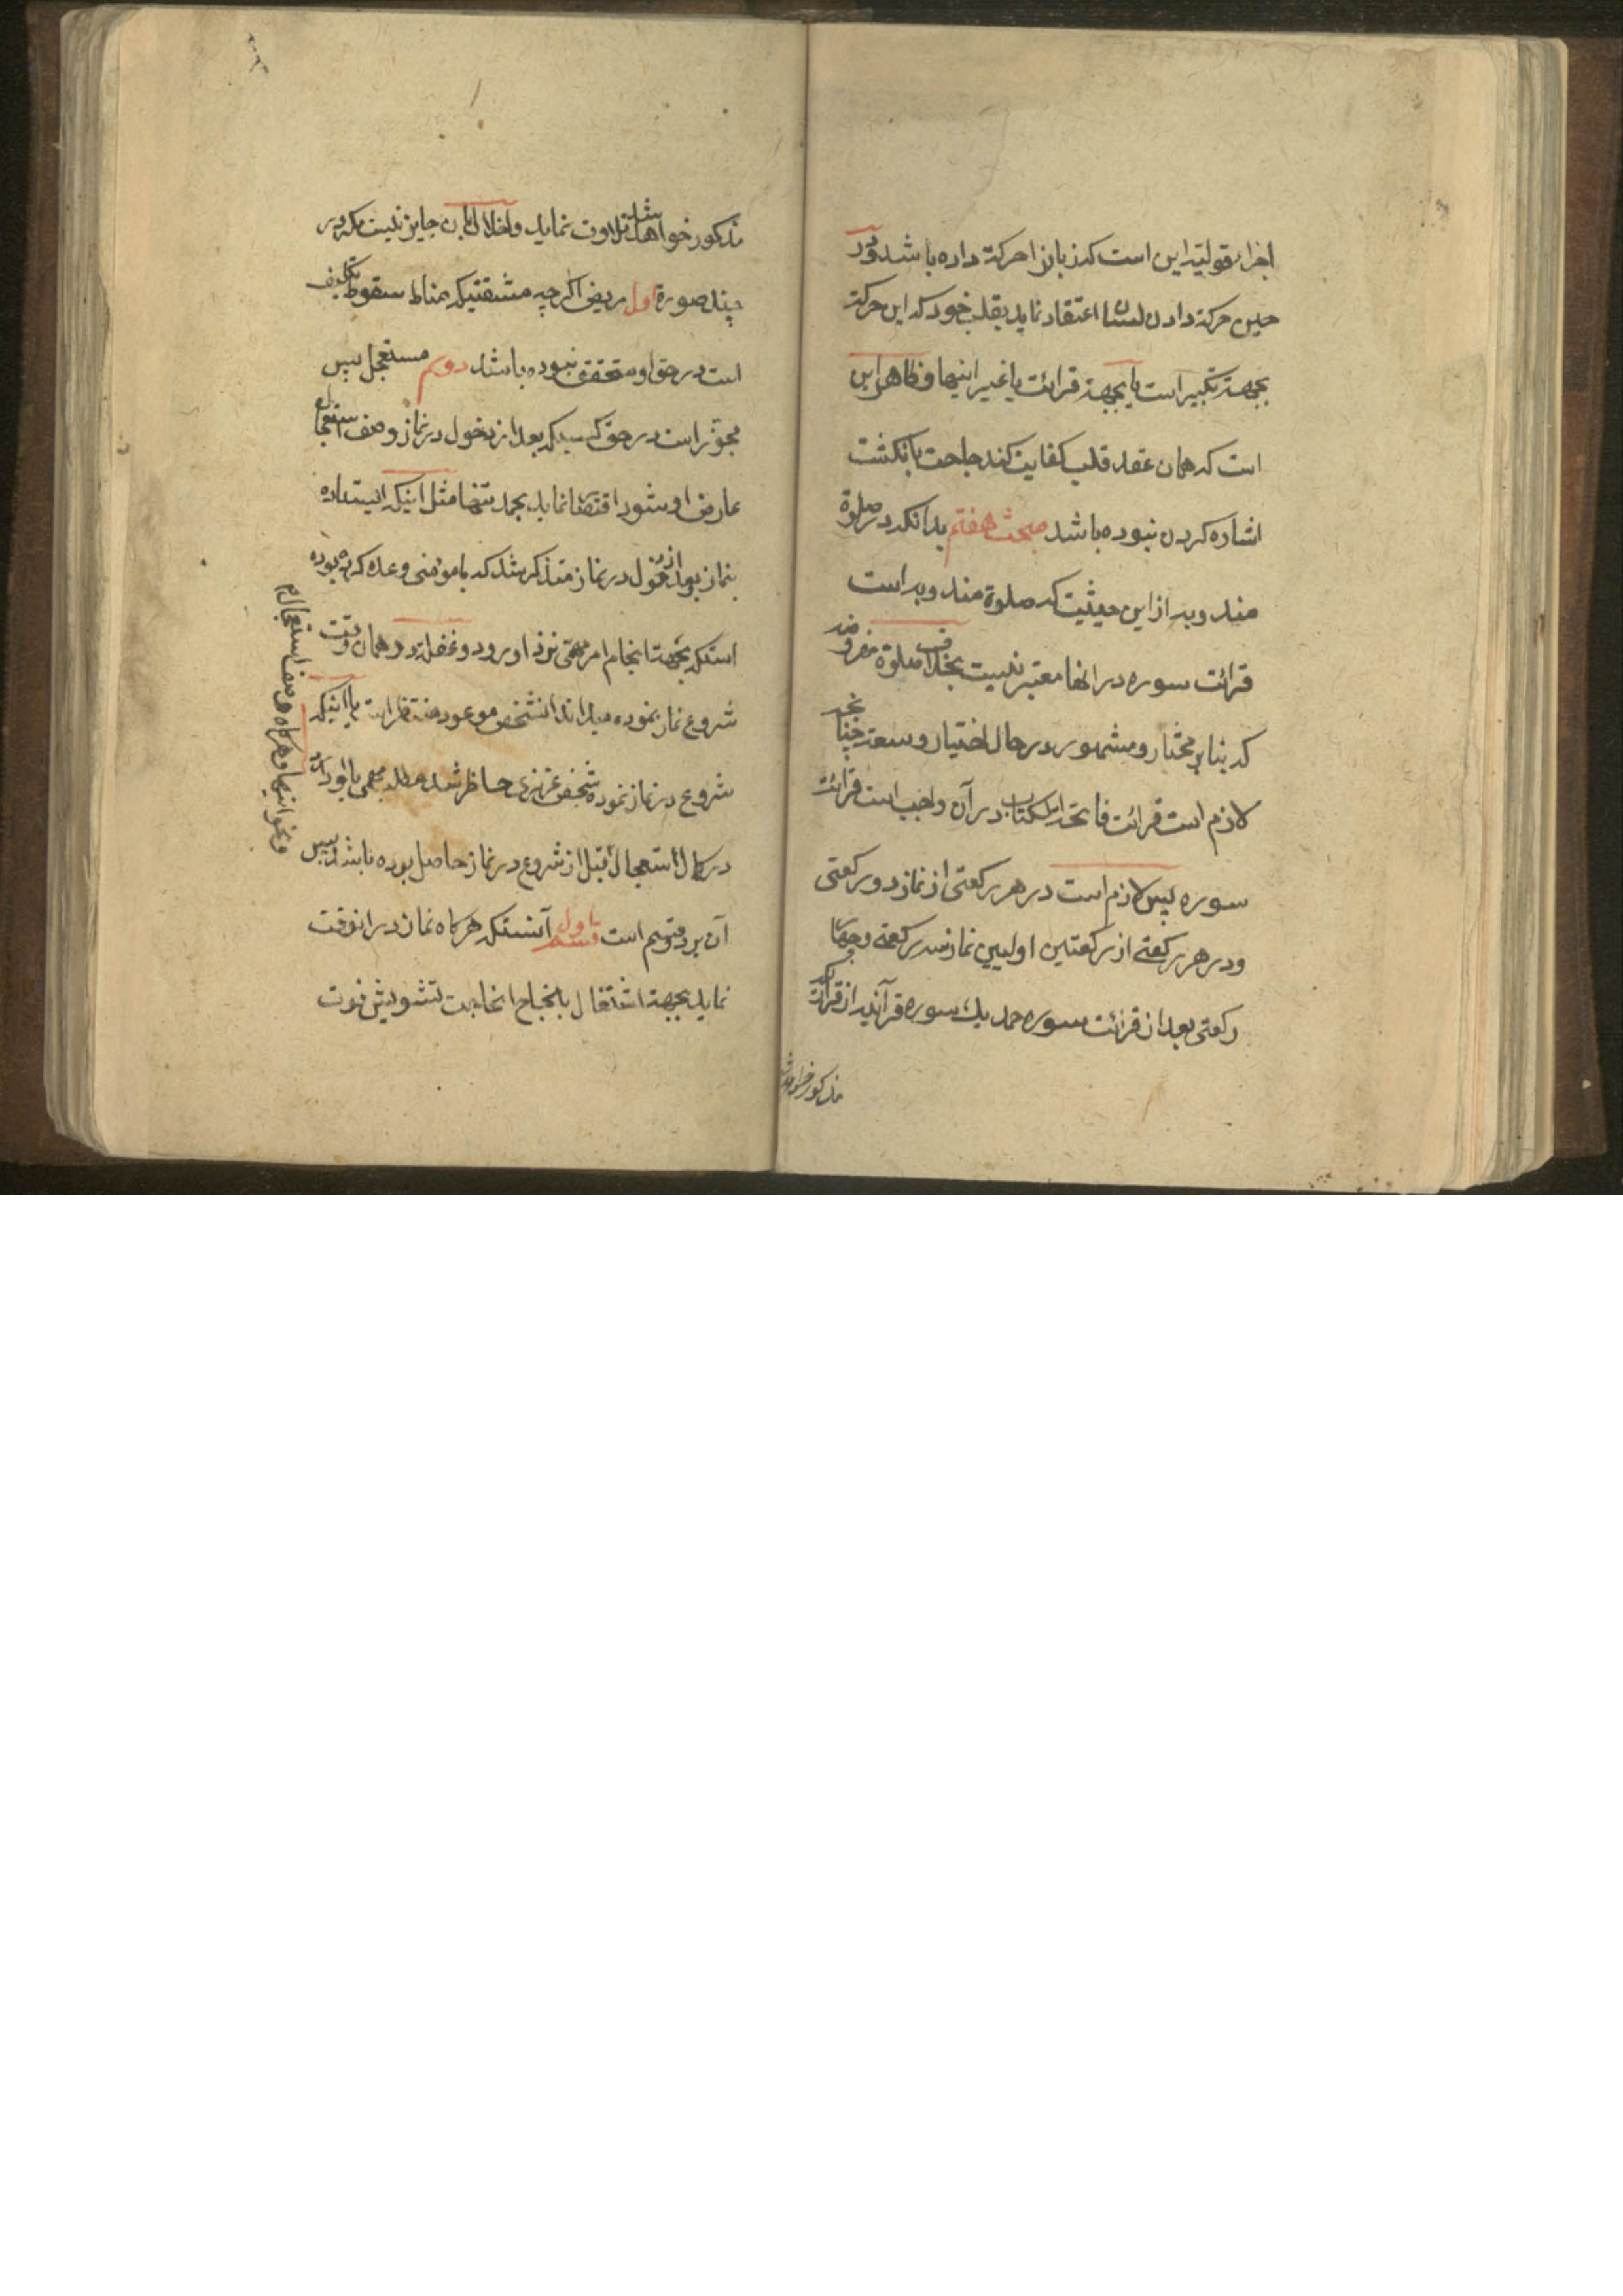 اجزاء قولیه این است که زبانرا حرکة داده باشد و در
حین حرکة دادن لسان اعتقاد نماید بقلب خود که این حرکة
بجهة تکبیر است یا بجهة قرائت یا غیر اینها و ظاهر این
است که همان عقد قلب کفایت کند حاجت بانکشت
اشاره کردن نبوده باشد مبحث هفتم بدانکه در صلوة
مندوبه از این حیثیت که صلوة مندوبه است
قرائت سوره در انها معتبر نیست بخلاف صلوة مفروضه
که بنابر مختار و مشهور در حال اختیار و سعة چنانچه
لازم است قرائت فاتحة الکتاب در آن واجب است قرائت
سوره پس لازم است در هر رکعتی از نماز دو رکعتی
و در هر رکعتی از رکعتین اولیین نماز سه رکعتی و چهار
رکعتی بعد از قرائت سوره حمد یك سوره قرآنیه از قرائت که
مذکور خواهد شد
مذکور خواهد شد تلاوت نماید و اخلال بان جایز نیست مکر در
چند صورة اول مریض اکر چه مشقتیکه مناط سقوط تکلیف
است در حق او متحقق نبوده باشد دویم مستعجل پس
مجوز است در حق کسیکه بعد از دخول در نماز وصف استعجال
عارض او شود اقتصار نماید بحمد تنها مثل اینکه ایستاده
بنماز بعد از دخول در نماز متذکر شد که با مومنی وعده کرده بوده
استکه بجهة انجام امر مهمی نزد او رود و غفلة در همان وقت
شروع نماز نموده میداند انشخص موعود منتظر است یا اینکه
شروع در نماز نموده شخص عزیزی حاظر شد مطلب مهمی با او دارد
و نحو اینها و هرکاه وصف استعجال
در کمال استعجال قبل از شروع در نماز حاصل بوده باشد پس
آن بر دو قسم است قسم اول آنستکه هرکاه نماز در انوقت
نماید بجهة اشتغال بانجاح انحاجت تشویش فوت